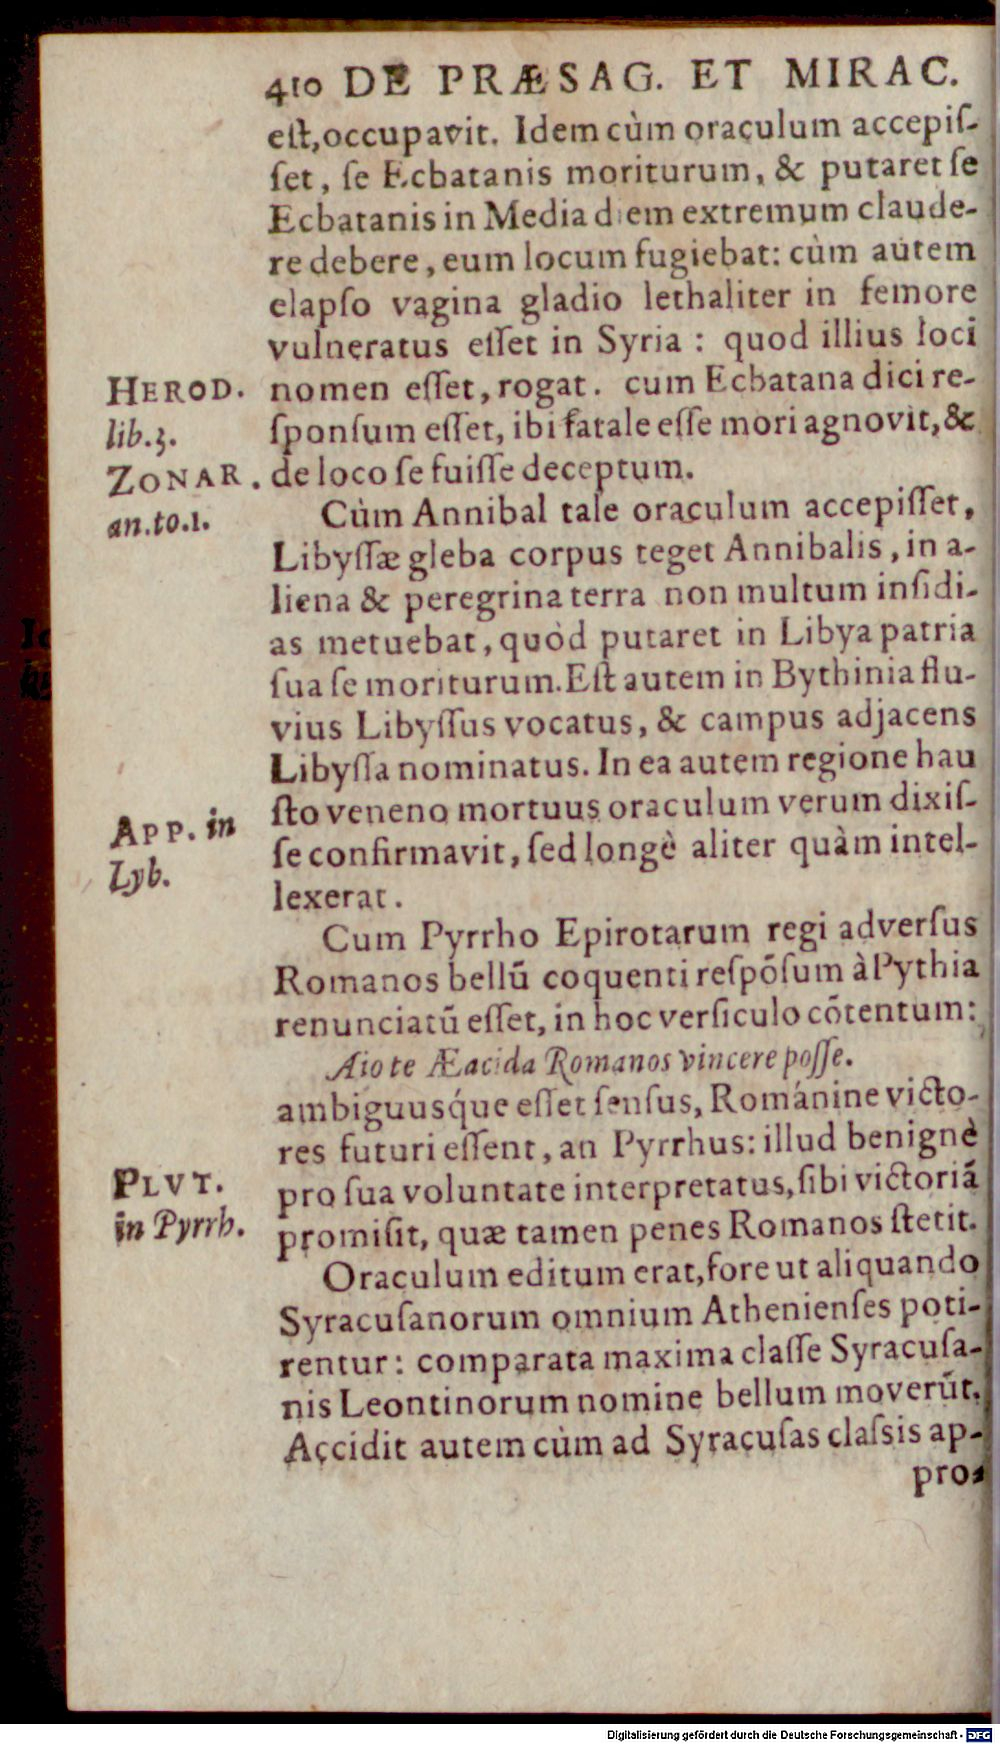 410 DE PRÆSAG. ET MIRAC.
eſt, occupavit. Idem cùm oraculum accepiſ-
ſet, ſe Ecbatanis moriturum, & putaret ſe
Ecbatanis in Media diem extremum claude-
re debere, eum locum fugiebat: cùm autem
elapſo vagina gladio lethaliter in femore
vulneratus eſſet in Syria: quod illius loci
HEROD. nomen eſſet, rogat. cum Ecbatana dici re-
lib.3. ſponſum eſſet, ibi fatale eſſe mori agnovit, &
ZONAR. de loco ſe fuiſſe deceptum.
an.to.1. Cùm Annibal tale oraculum accepiſſet,
Libyſſæ gleba corpus teget Annibalis, in a-
liena & peregrina terra non multum inſidi-
as metuebat, quòd putaret in Libya patria
ſua ſe moriturum. Eſt autem in Bythinia flu-
vius Libyſſus vocatus, & campus adjacens
Libyſſa nominatus. In ea autem regione hau
APP. in ſto veneno mortuus oraculum verum dixiſ-
Lyb. ſe confirmavit, ſed longè aliter quàm intel-
lexerat.
Cum Pyrrho Epirotarum regi adverſus
Romanos bellũ coquenti reſpõſum à Pythia
renunciatũ eſſet, in hoc verſiculo cõtentum:
Aio te Æacida Romanos vincere poſſe.
ambiguusq́ue eſſet ſenſus, Románine victo-
res futuri eſſent, an Pyrrhus: illud benignè
PLVT. pro ſua voluntate interpretatus, ſibi victoriã
in Pyrrh. promiſit, quæ tamen penes Romanos ſtetit.
Oraculum editum erat, fore ut aliquando
Syracuſanorum omnium Athenienſes poti-
rentur: comparata maxima claſſe Syracuſa-
nis Leontinorum nomine bellum moverũt.
Accidit autem cùm ad Syracuſas claſsis ap-
pro-
Digitalisierung gefördert durch die Deutsche Forschungsgemeinschaft - DFG